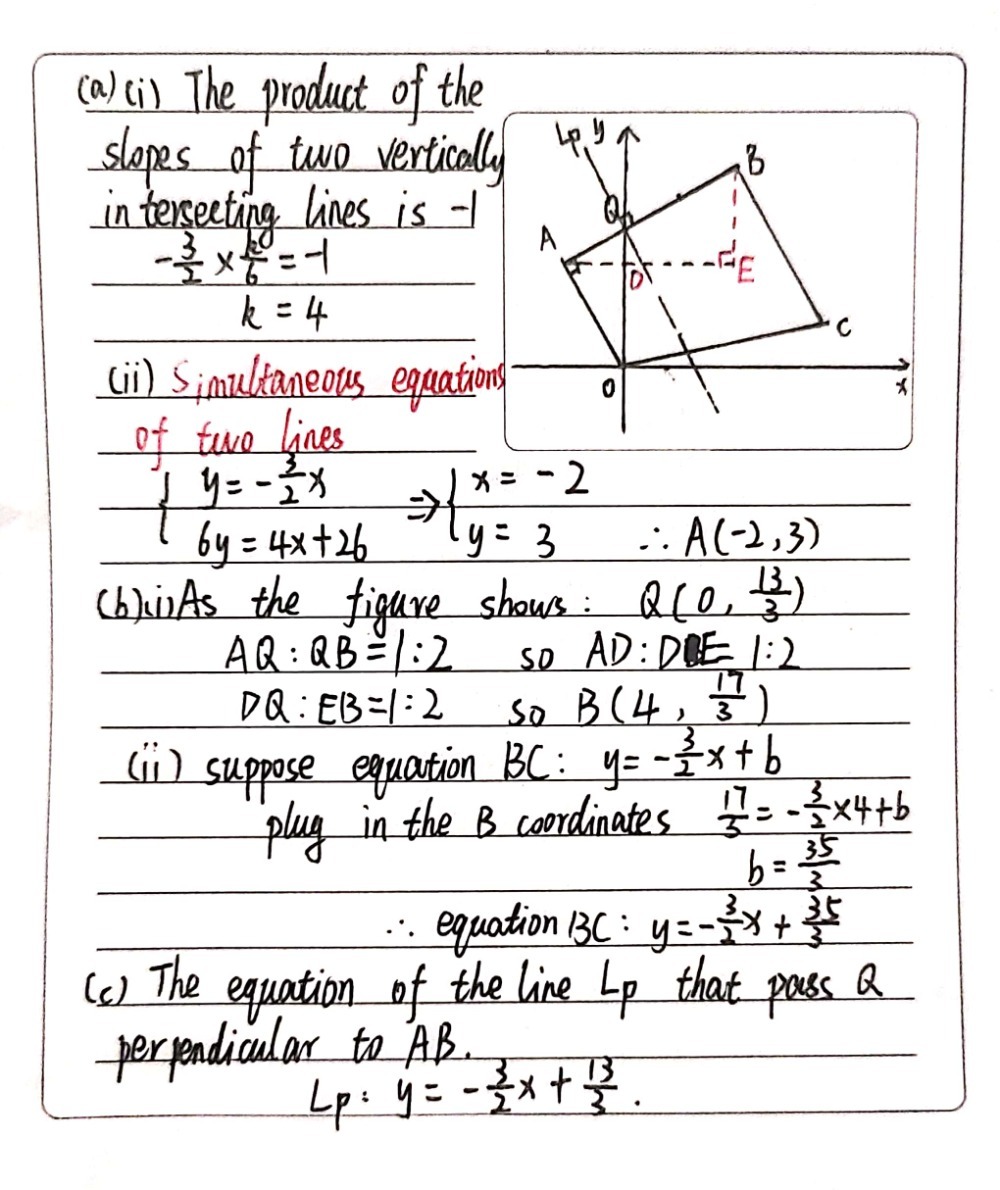 (a)(i) The product of the
slopes of two vertically
intersecting lines is -1
-3/2 × k/6 = -1
k = 4
Lp y
B
Q
A
D
E
C
O
x
(ii) Simultaneous equations
of two lines
{ y = -3/2 x ⇒ { x = -2
6y = 4x+26 y = 3 ∴ A(-2,3)
(b)(i) As the figure shows: Q(0, 13/3)
AQ : QB = 1:2 so AD : DE = 1:2
DQ : EB = 1:2 so B(4, 17/3)
(ii) suppose equation BC: y = -3/2 x + b
plug in the B coordinates 17/3 = -3/2 ×4+b
b = 35/3
∴ equation BC: y = -3/2 x + 35/3
(c) The equation of the line Lp that pass Q
perpendicular to AB.
Lp: y = -3/2 x + 13/3.